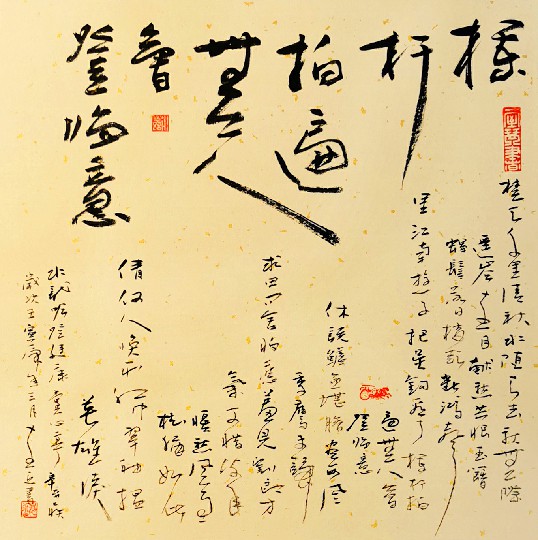 欄
杆
拍遍
無人
會
登臨意
楚天千里清秋水隨天去秋無際
遙岑遠目獻愁供恨玉簪
螺髻落日樓頭斷鴻聲
里江南遊子把吳鉤看了欄杆拍
遍無人會
登臨意
休說鱸魚堪膾盡西風
季鷹歸未
求田問舍怕應羞見劉郎才
氣可惜流年
憂愁風雨
樹猶如此
倩何人喚取紅巾翠袖揾
英雄淚
水龍吟登建康賞心亭 辛棄疾
歲次壬寅年三月